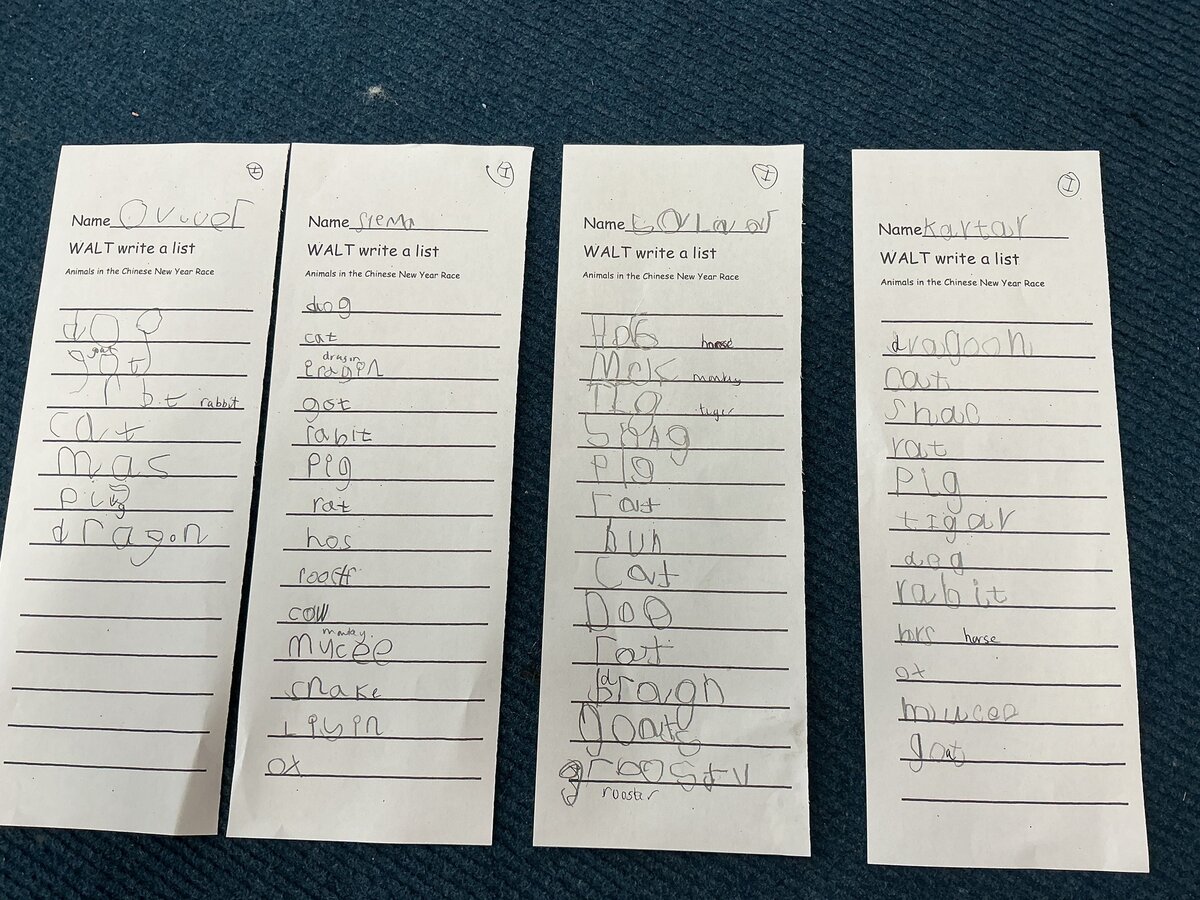 I
Name Oliver
WALT write a list
Animals in the Chinese New Year Race
dog
goat goat
rbt rabbit
cat
mac
pig
dragon
I
Name Siena
WALT write a list
Animals in the Chinese New Year Race
dog
cat
dragon
got
rabit
pig
rat
hos
roostr
cow
monkey
mucee
snake
ox
I
Name
WALT write a list
Animals in the Chinese New Year Race
Hos horse
Mck monkey
TIg tiger
pig
rat
bun
Cat
Dog
rat
goat
roostr
rooster
I
Name Kartar
WALT write a list
Animals in the Chinese New Year Race
dragon
cat
snac
rat
pig
tigar
dog
rabit
hrs horse
ox
muncee
goat